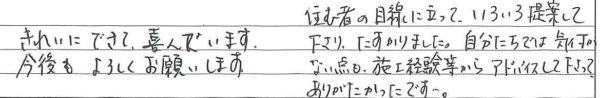 きれいにできて、喜んでいます.
今後も よろしくお願いします
住む者の目線に立って、いろいろ提案して
下さり、たすかりました。自分たちでは 気付か
ない点も、施工経験等から アドバイスして下さって
ありがたかったです〜。